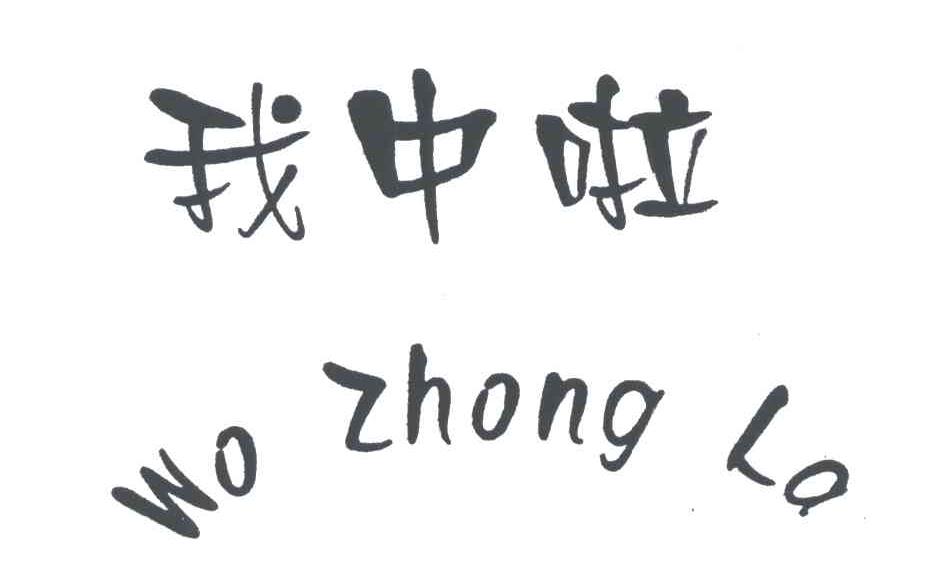 我中啦
Wo Zhong La